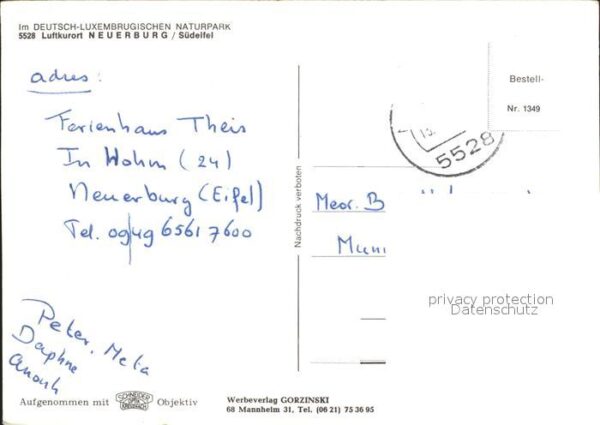 Im DEUTSCH-LUXEMBRUGISCHEN NATURPARK
5528 Luftkurort NEUERBURG / Südeifel
adres:
Ferienhaus Theis
In Hohm (24)
Neuerburg (Eifel)
Tel. 0949 6561 7600
Peter, Meta
Daphne
Anouk
Aufgenommen mit SCHNEIDER KREUZNACH Objektiv
Nachdruck verboten
Werbeverlag GORZINSKI
68 Mannheim 31, Tel. (06 21) 75 36 95
Bestell-
Nr. 1349
5528
Mevr. B
privacy protection
Datenschutz